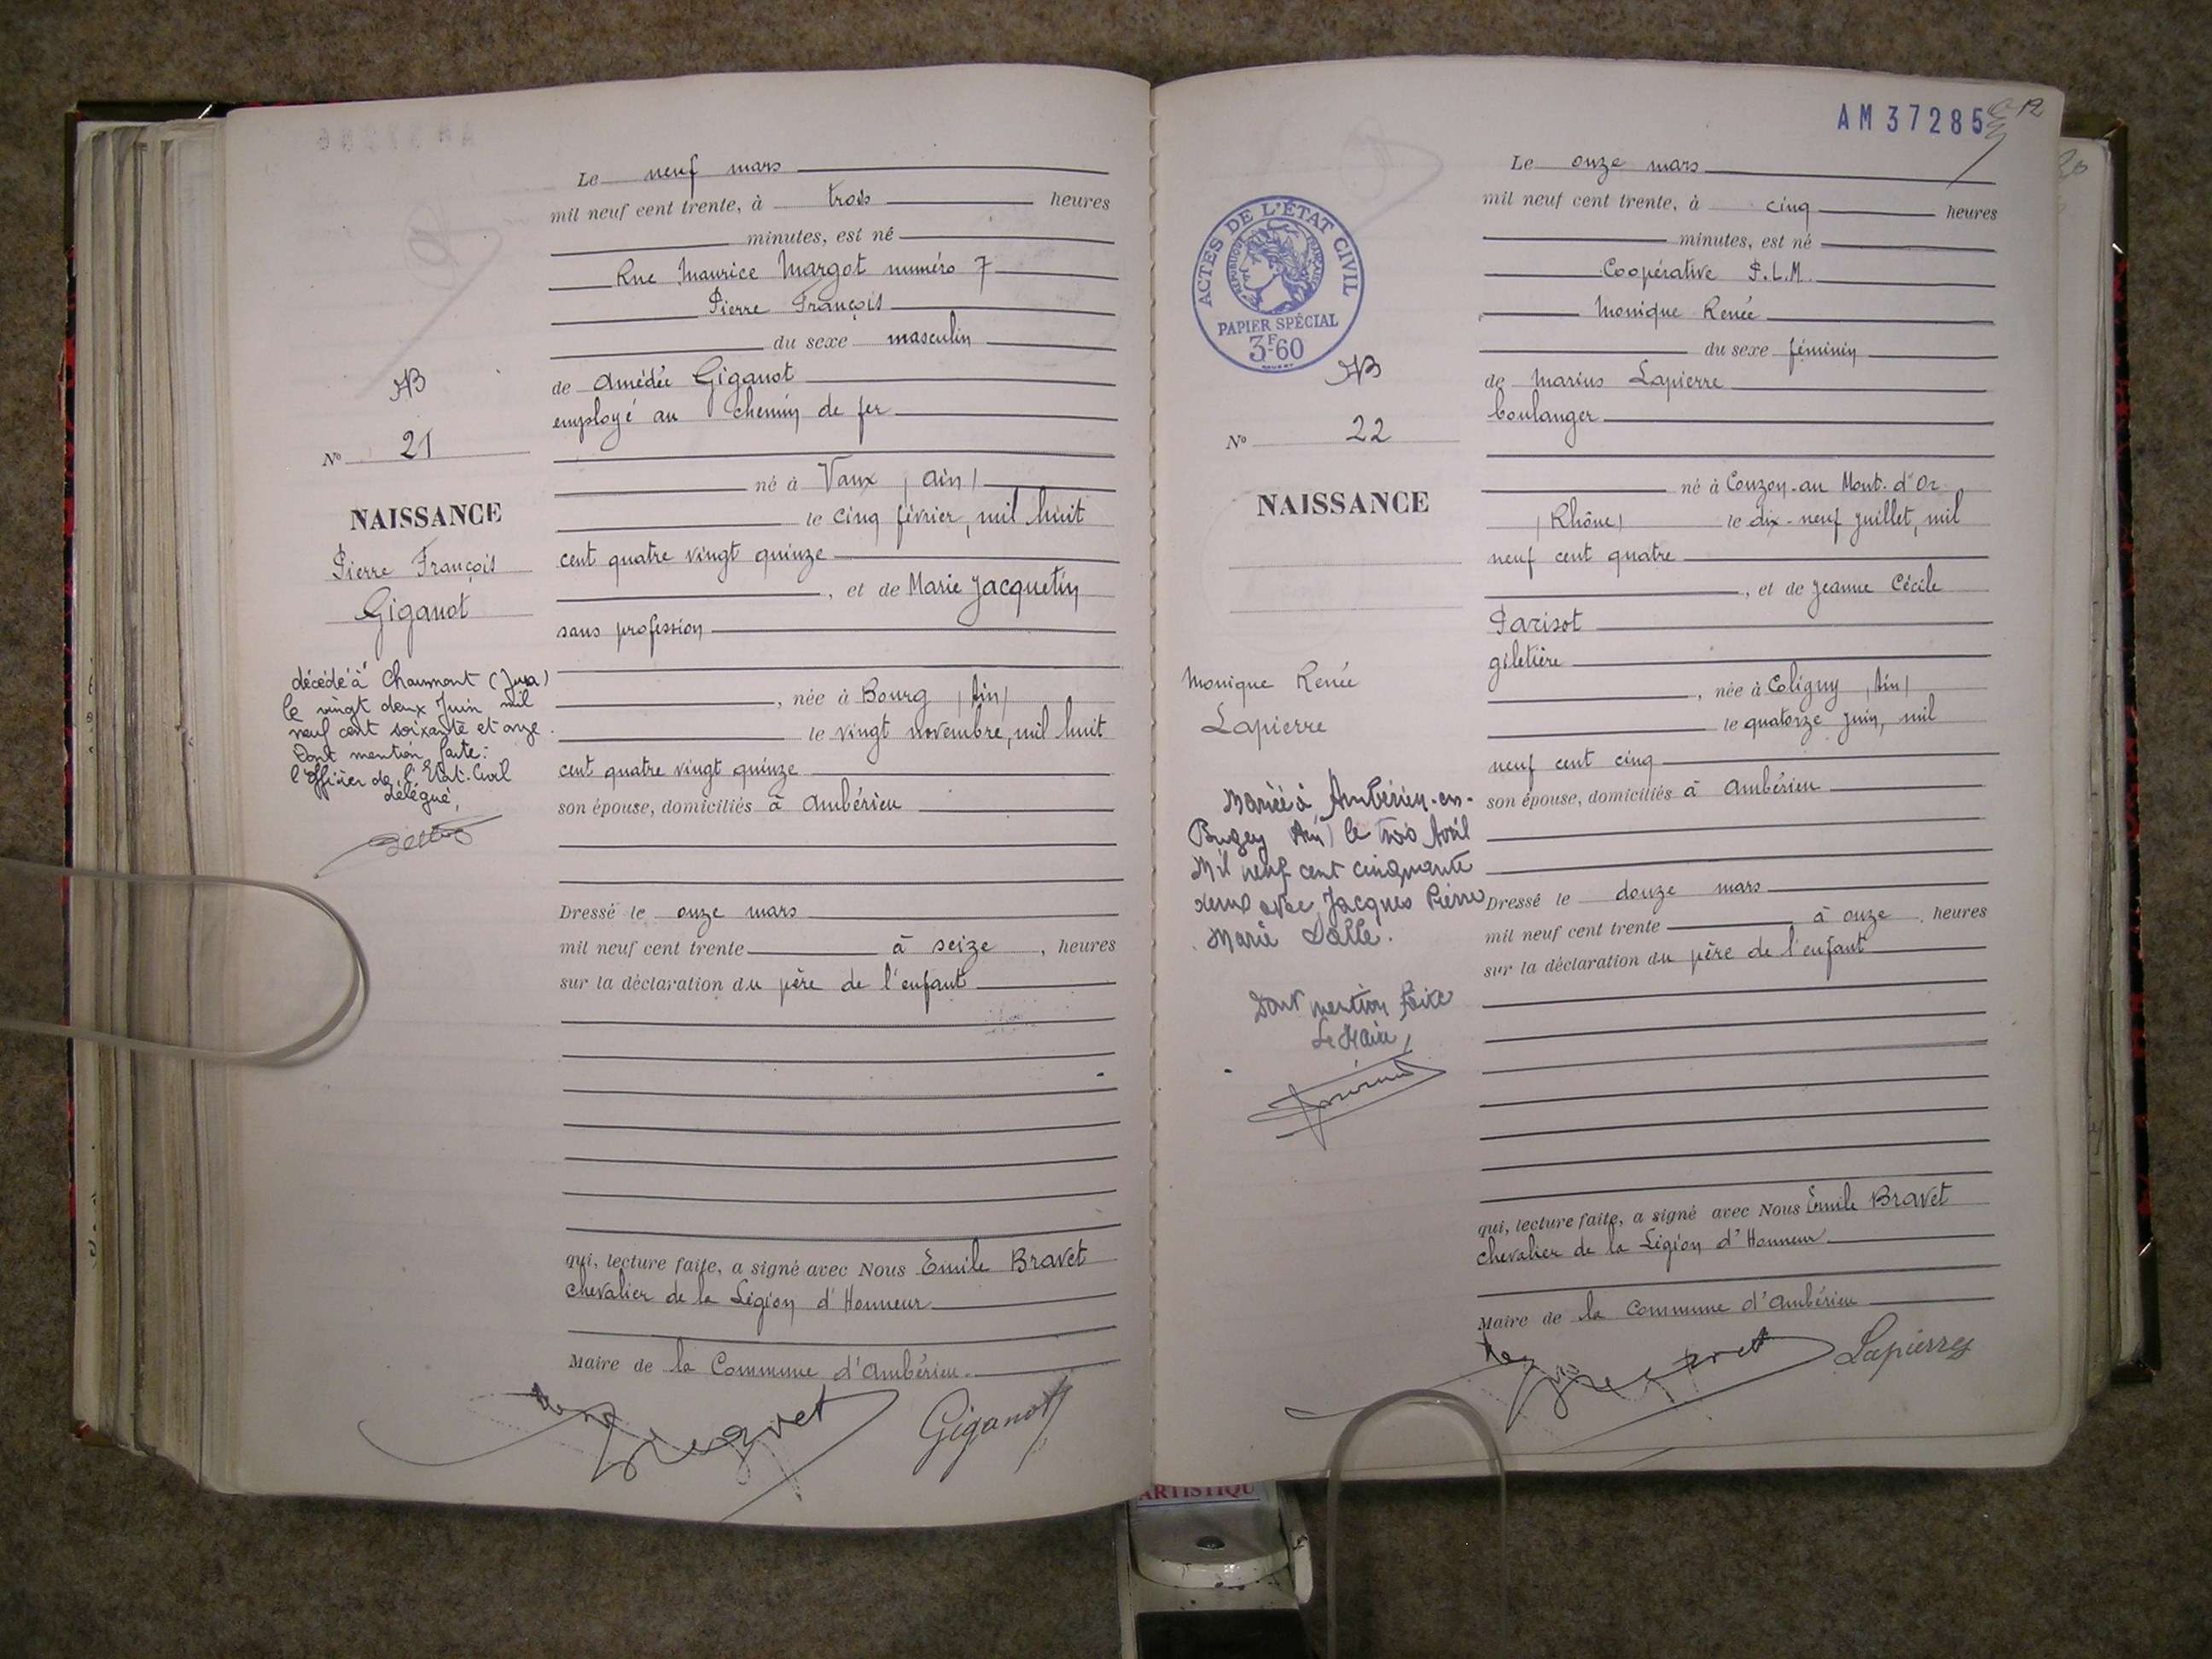 Le neuf mars
mil neuf cent trente, à trois heures
minutes, est né
Rue Maurice Margot numéro 7
Pierre François
du sexe masculin
de Amédée Giganot
employé au chemin de fer
né à Vaux (Ain)
le cinq février, mil huit
cent quatre vingt quinze
, et de Marie Jacquetin
sans profession
, née à Bourg (Ain)
le vingt novembre, mil huit
cent quatre vingt quinze
son épouse, domiciliés à Ambérieu
Dressé le onze mars
mil neuf cent trente à seize, heures
sur la déclaration du père de l'enfant
qui, lecture faite, a signé avec Nous Emile Bravet
chevalier de la Légion d'Honneur
Maire de la Commune d'Ambérieu.
Giganot
AB
No 21
NAISSANCE
Pierre François
Giganot
décédé à Chaumont (Jura)
le vingt deux Juin mil
neuf cent soixante et onze.
Dont mention faite:
l'Officier de l'Etat-Civil
délégué,
AM 37285
12
Le onze mars
mil neuf cent trente, à cinq heures
minutes, est né
Coopérative P.L.M.
Monique Renée
du sexe féminin
de Marius Lapierre
boulanger
né à Couzon-au Mont-d'Or
(Rhône) le dix-neuf juillet, mil
neuf cent quatre
, et de Jeanne Cécile
Parisot
giletière
, née à Coligny (Ain)
le quatorze juin, mil
neuf cent cinq
son épouse, domiciliés à Ambérieu
Dressé le douze mars
mil neuf cent trente à onze, heures
sur la déclaration du père de l'enfant
qui, lecture faite, a signé avec Nous Emile Bravet
chevalier de la Légion d'Honneur
Maire de la Commune d'Ambérieu
Lapierre
ACTES DE L'ÉTAT CIVIL
RÉPUBLIQUE FRANÇAISE
PAPIER SPÉCIAL
3F60
AB
No 22
NAISSANCE
Monique Renée
Lapierre
Mariée à Ambérieu-en-
Bugey (Ain) le trois Avril
Mil neuf cent cinquante
deux avec Jacques Pierre
Marie
Dont mention faite
Le Maire,
ARTISTIQU